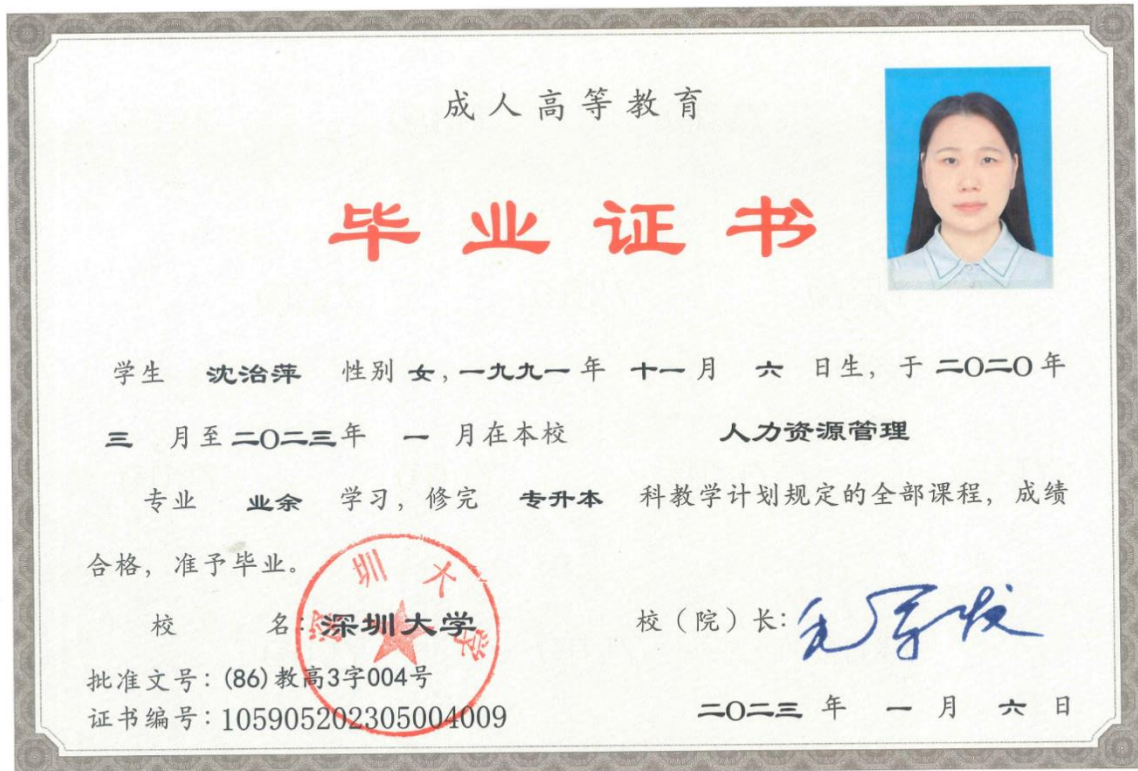 成人高等教育
毕业证书
学生 沈治萍 性别 女，一九九一 年 十一 月 六 日生，于 二〇二〇 年
三 月至 二〇二三 年 一 月在本校 人力资源管理
专业 业余 学习，修完 专升本 科教学计划规定的全部课程，成绩
合格，准予毕业。
校 名：深圳大学 校（院）长：毛军发
深圳大学
批准文号：(86)教高3字004号
证书编号：105905202305004009 二〇二三 年 一 月 六 日